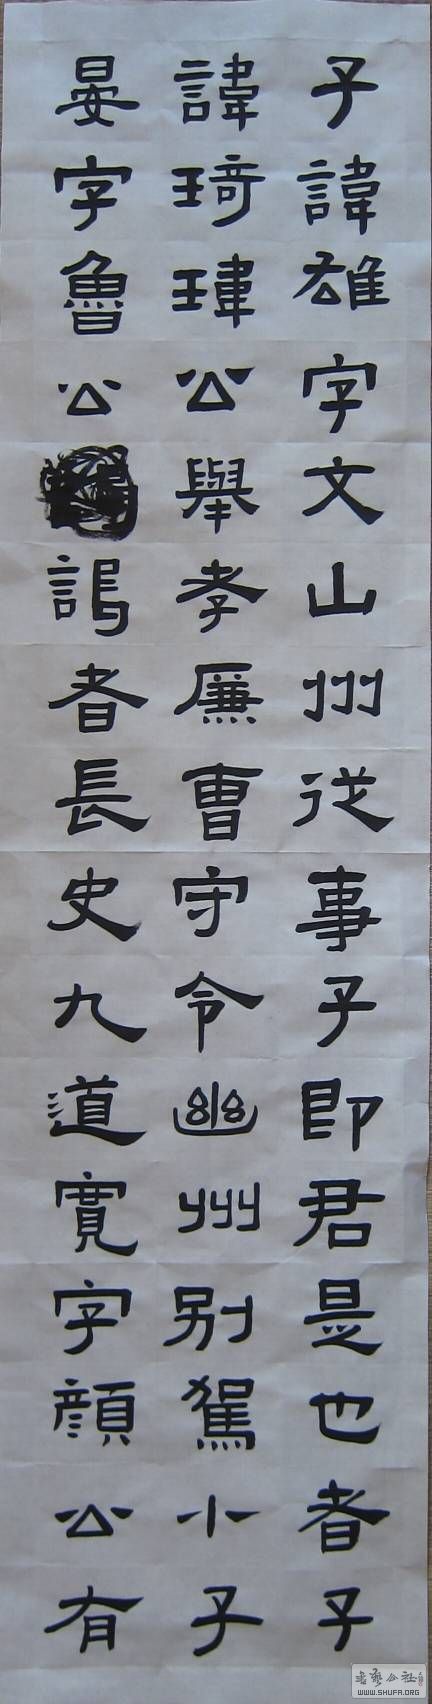 子諱雄字文山州從事子即君是也者子
諱琦瑋公舉孝廉曹守令幽州別駕小子
晏字魯公謁者長史九道寬字顏公有
書藝公社
WWW.SHUFA.ORG